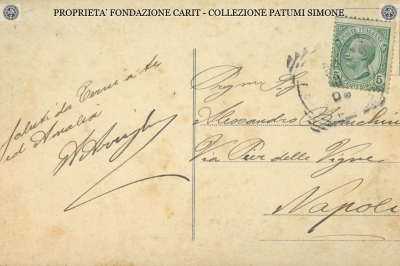 PROPRIETA' FONDAZIONE CARIT - COLLEZIONE PATUMI SIMONE
Saluti da Terni a te
ed Amalia
POSTE ITALIANE
5
Alessandro
Via Pier delle Vigne
Napoli